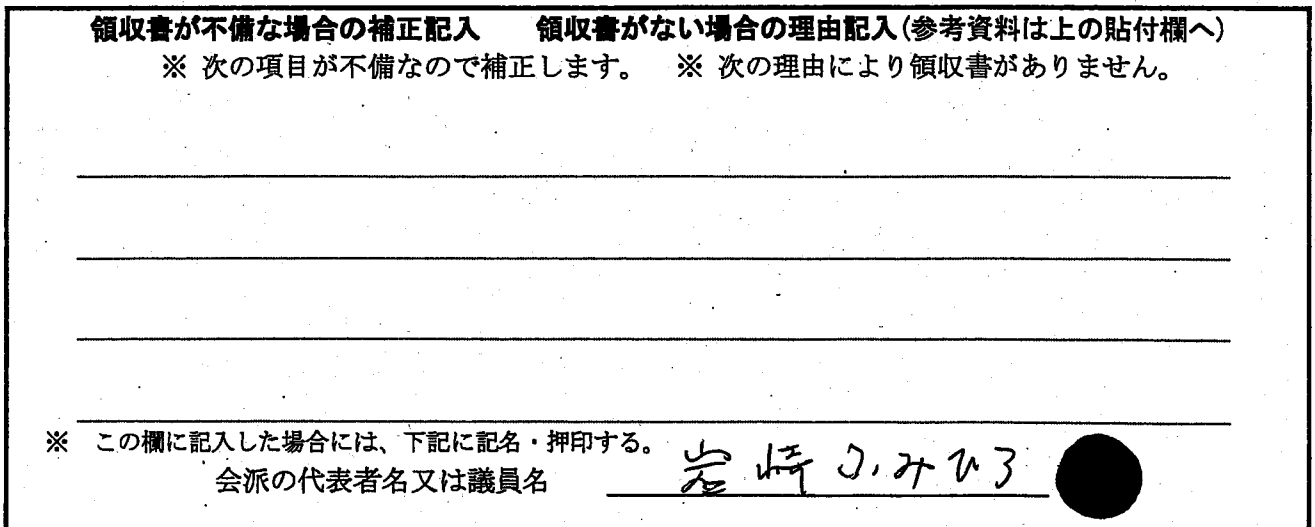 領収書が不備な場合の補正記入　領収書がない場合の理由記入(参考資料は上の貼付欄へ)
※ 次の項目が不備なので補正します。　※ 次の理由により領収書がありません。
※　この欄に記入した場合には、下記に記名・押印する。
会派の代表者名又は議員名　岩崎ふみひろ